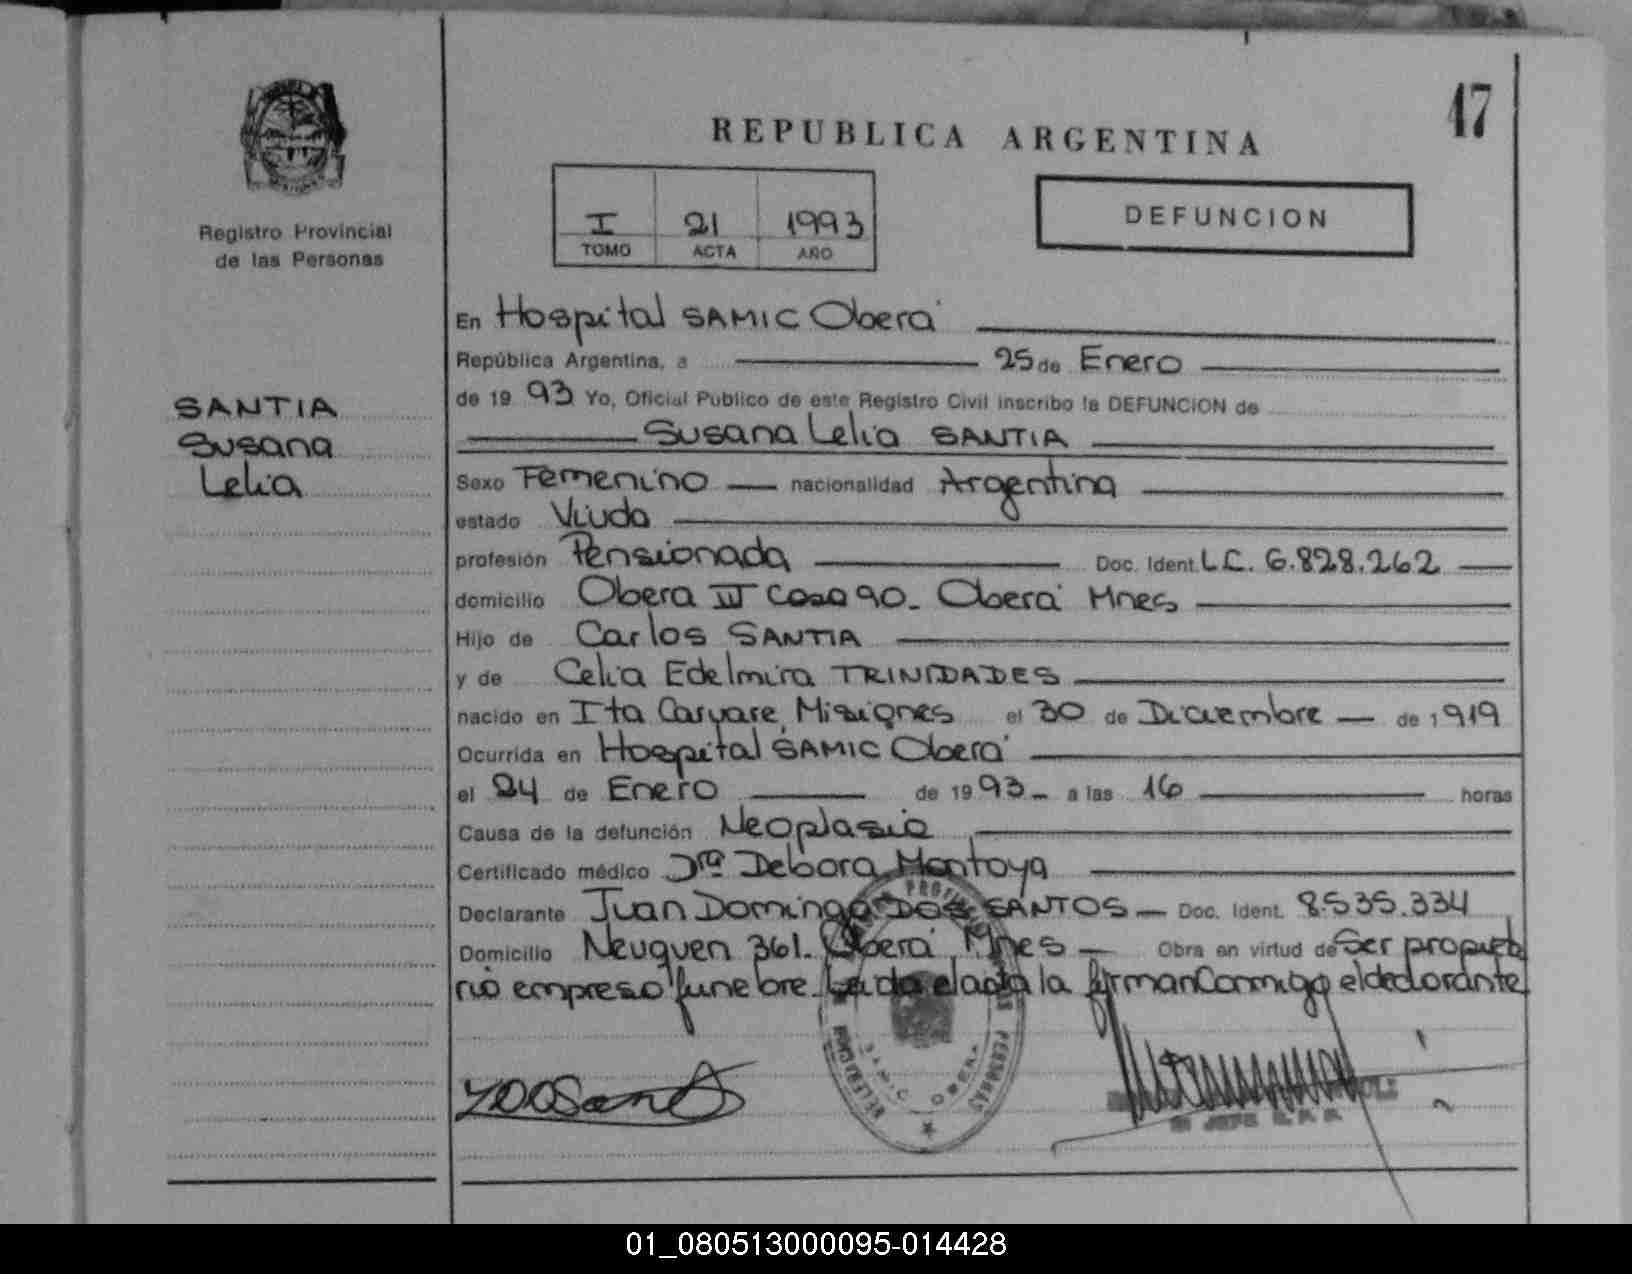 47
REPUBLICA ARGENTINA
I 21 1993
TOMO ACTA AÑO
DEFUNCION
Registro Provincial
de las Personas
SANTIA
Susana
Lelia
En Hospital SAMIC Oberá
República Argentina, a 25 de Enero
de 19 93 Yo, Oficial Público de este Registro Civil inscribo la DEFUNCION de
Susana Lelia SANTIA
Sexo Femenino nacionalidad Argentina
estado Viuda
profesión Pensionada Doc. Ident. L.C. 6.828.262
domicilio Obera II Casa 90. Oberá Mnes
Hijo de Carlos SANTIA
y de Celia Edelmira TRINIDADES
nacido en Ita Caruare, Misiones el 30 de Diciembre de 1919
Ocurrida en Hospital SAMIC Oberá
el 24 de Enero de 19 93 a las 16 horas
Causa de la defunción Neoplasia
Certificado médico Dra Debora Montoya
Declarante Juan Domingo DOS SANTOS Doc. Ident. 8.535.334
Domicilio Neuquen 361. Oberá, Mnes Obra en virtud de Ser propieta
rio empresa funebre. Leida el acta la firman Conmigo el declarante
SAMIC OBERA
01_080513000095-014428